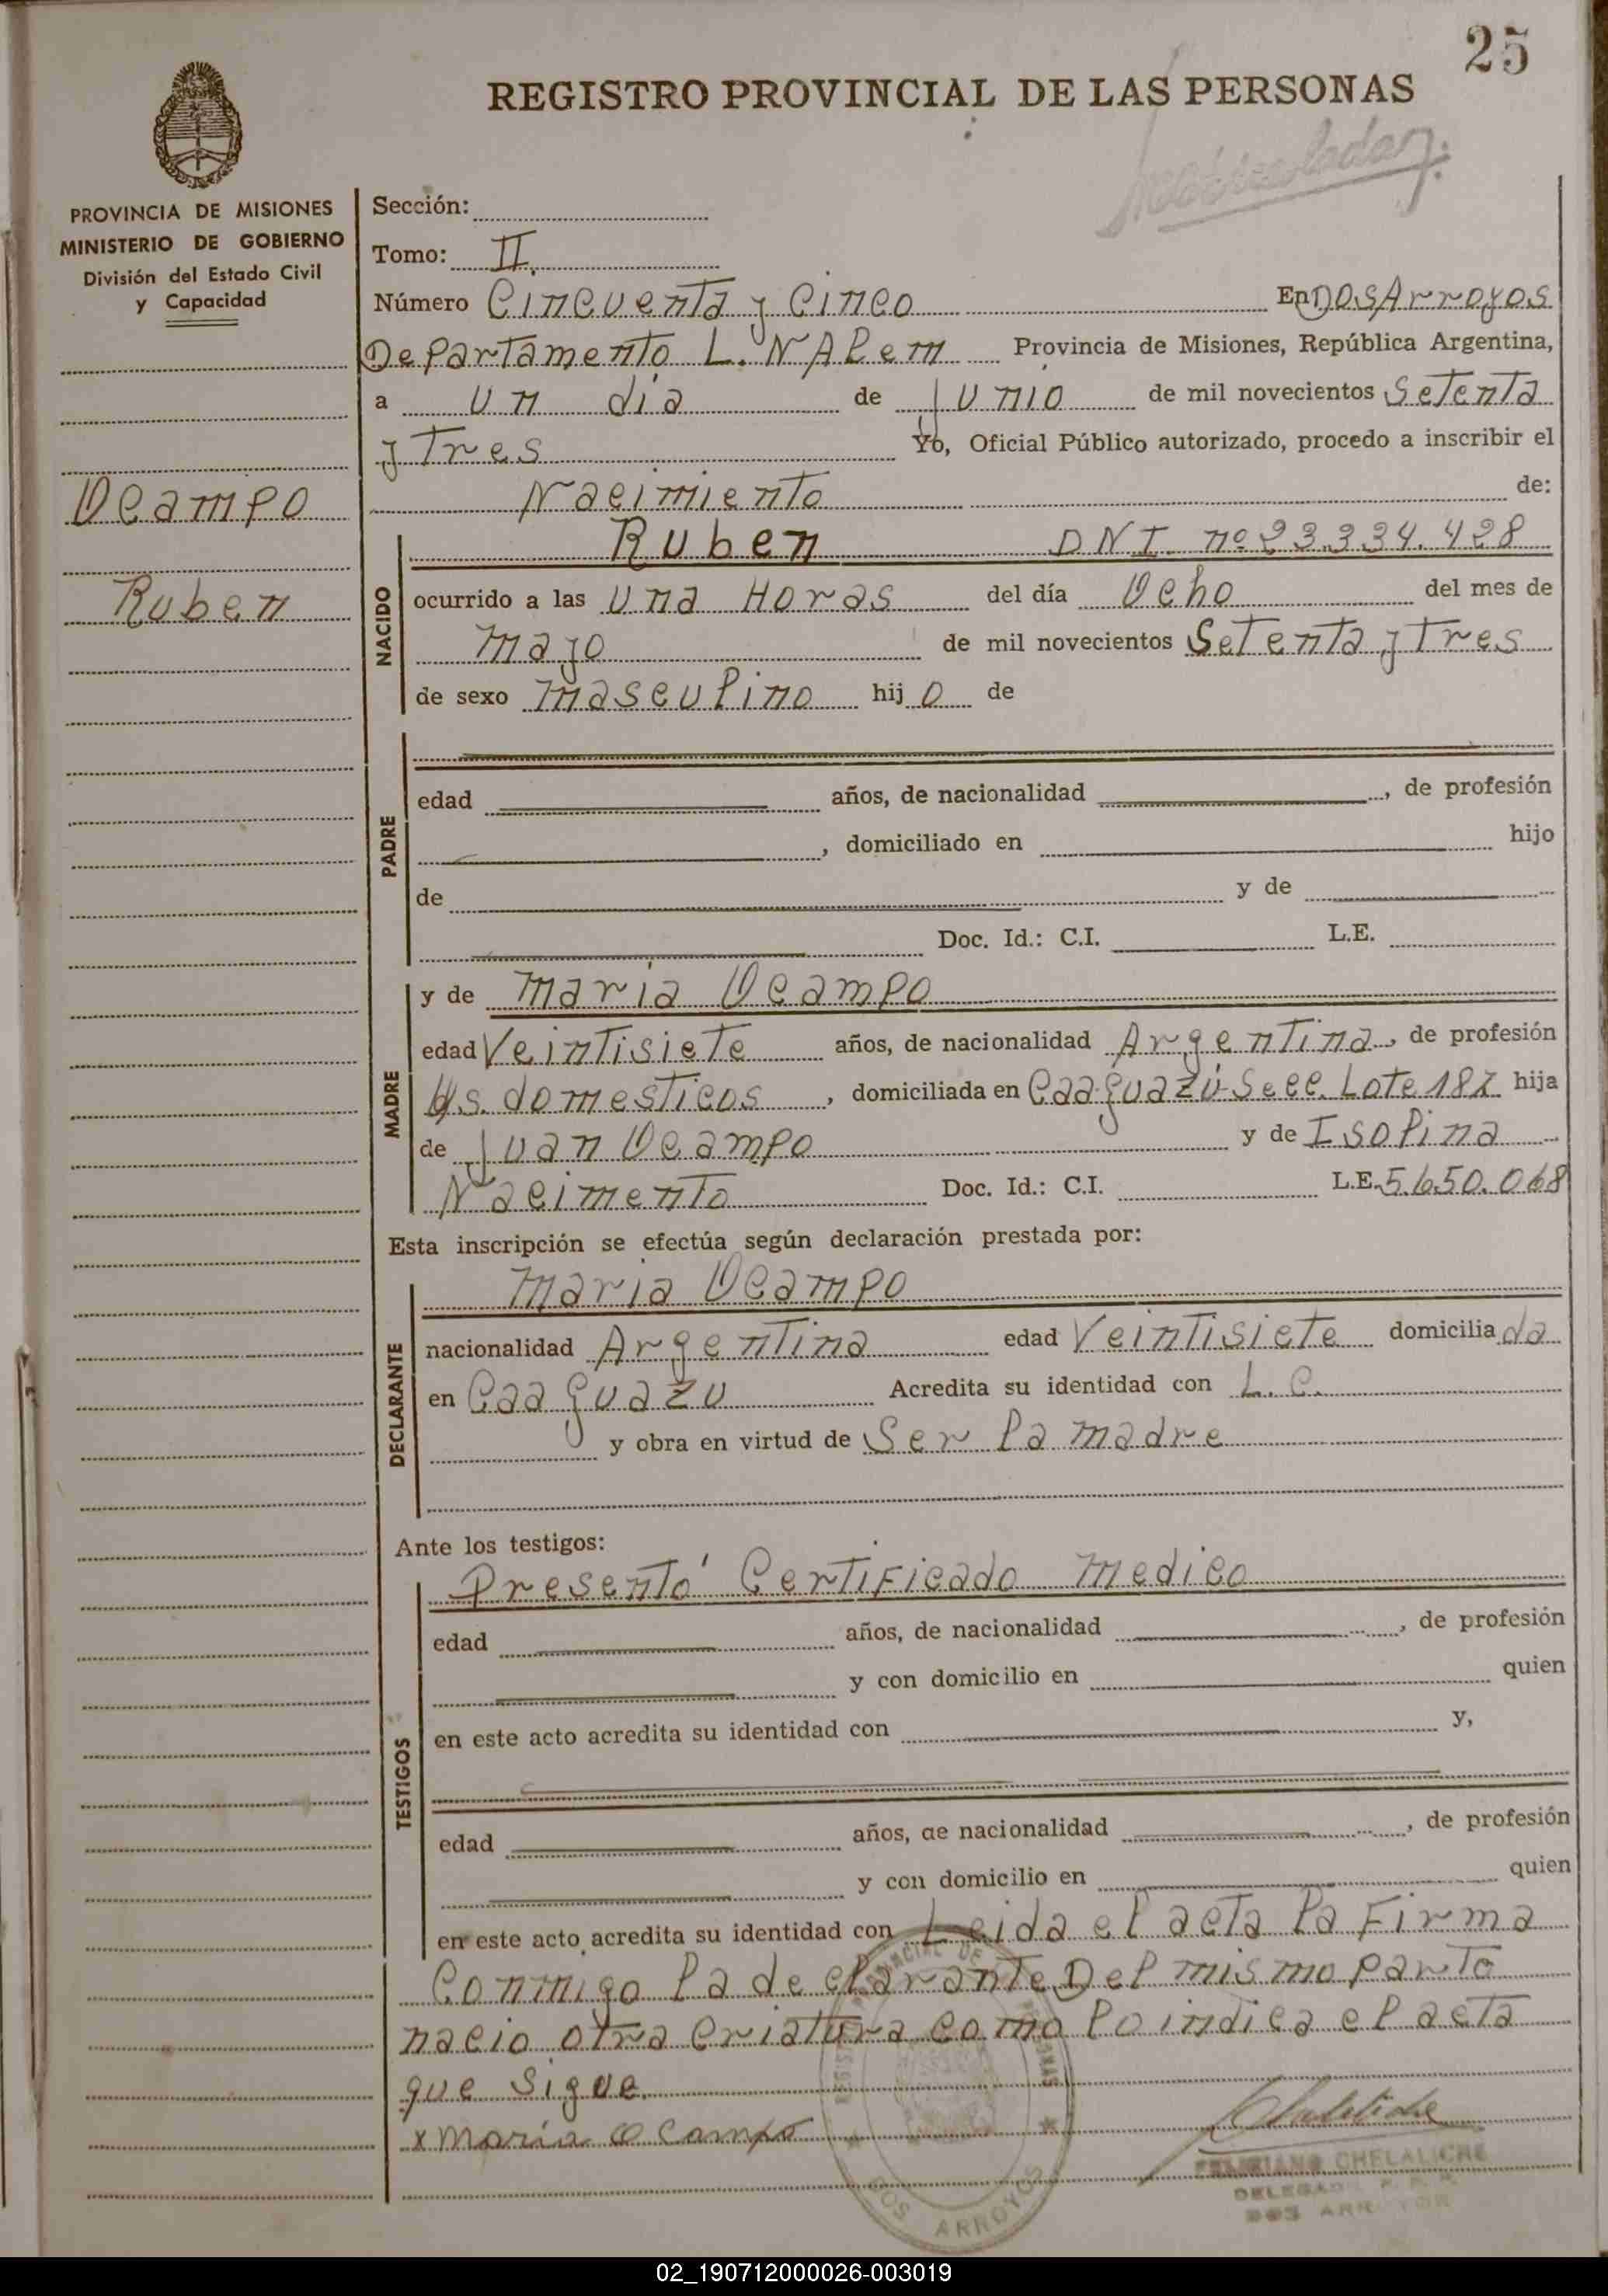 25
REGISTRO PROVINCIAL DE LAS PERSONAS
PROVINCIA DE MISIONES
MINISTERIO DE GOBIERNO
División del Estado Civil
y Capacidad
Ocampo
Ruben
Sección:
Tomo: II
Número Cincuenta y Cinco En Dos Arroyos
Departamento L. N Alem Provincia de Misiones, República Argentina,
a un dia de Junio de mil novecientos Setenta
y Tres Yo, Oficial Público autorizado, procedo a inscribir el
Nacimiento de:
NACIDO
Ruben DNI nº 23.334.428
ocurrido a las una Horas del día Ocho del mes de
Mayo de mil novecientos Setenta y Tres
de sexo Masculino hijo de
PADRE
edad años, de nacionalidad , de profesión
, domiciliado en hijo
de y de
Doc. Id.: C.I. L.E.
MADRE
y de Maria Ocampo
edad Veintisiete años, de nacionalidad Argentina, de profesión
Qs. domesticos, domiciliada en Caa-guazú-Secc. Lote 187 hija
de Juan Ocampo y de Isolina
Nacimento Doc. Id.: C.I. L.E. 5.650.068
Esta inscripción se efectúa según declaración prestada por:
DECLARANTE
Maria Ocampo
nacionalidad Argentina edad Veintisiete domiciliada
en Caa guazu Acredita su identidad con L.C.
y obra en virtud de Ser la madre
Ante los testigos:
TESTIGOS
Presentó Certificado Medico
edad años, de nacionalidad , de profesión
y con domicilio en quien
en este acto acredita su identidad con y,
edad años, de nacionalidad , de profesión
y con domicilio en quien
en este acto acredita su identidad con Leida el acta la Firma
Conmigo la declarante Del mismo parto
nacio otra Criatura como lo indica el acta
que sigue.
x Maria Ocampo
FELICIANO CHELALICHE
DELEGADO
DOS ARROYOS
DOS ARROYOS
02_190712000026-003019